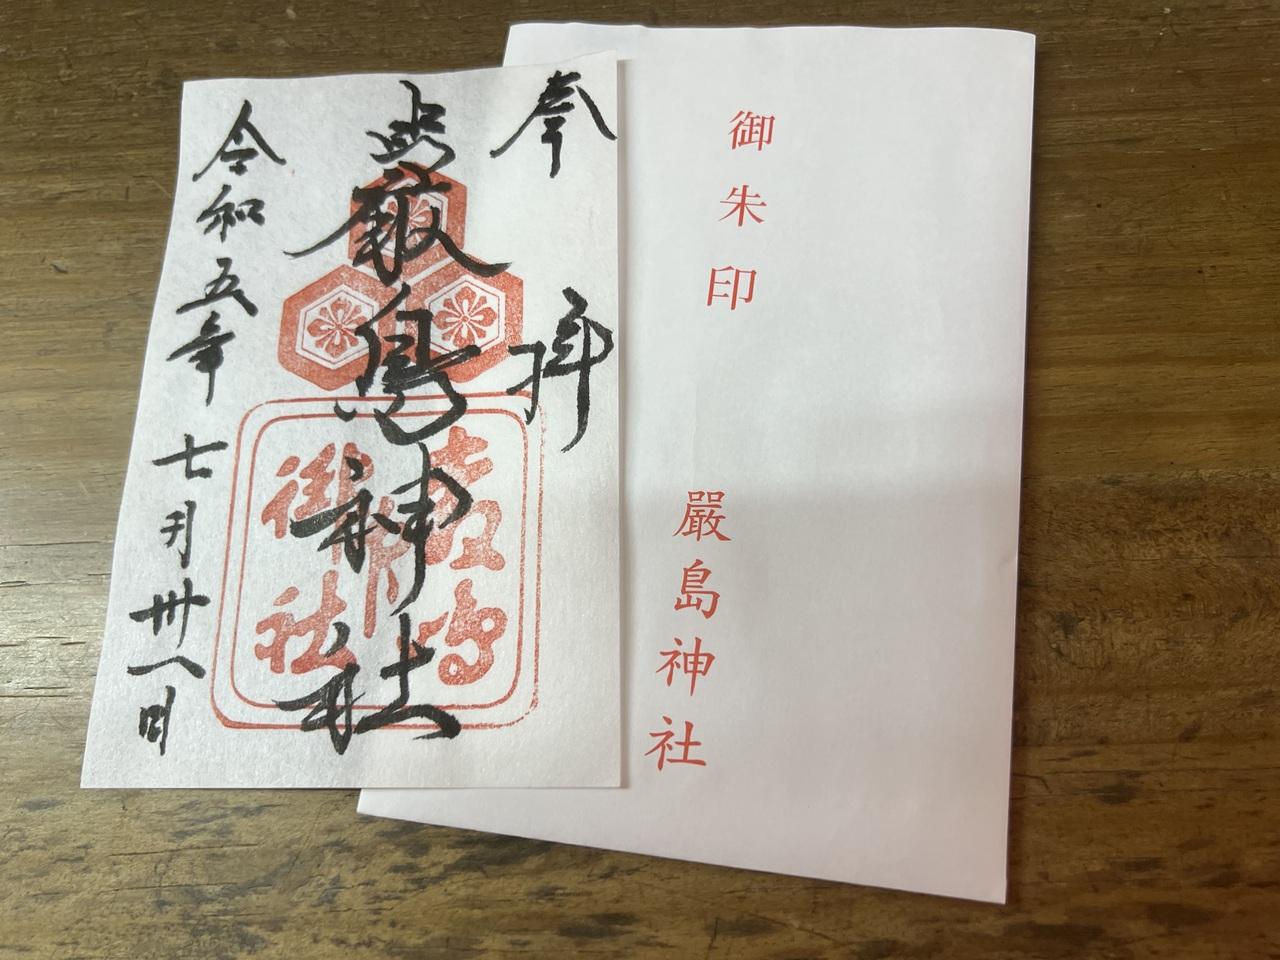 御朱印
嚴島神社
奉拝
嚴島神社
令和五年七月廿八日